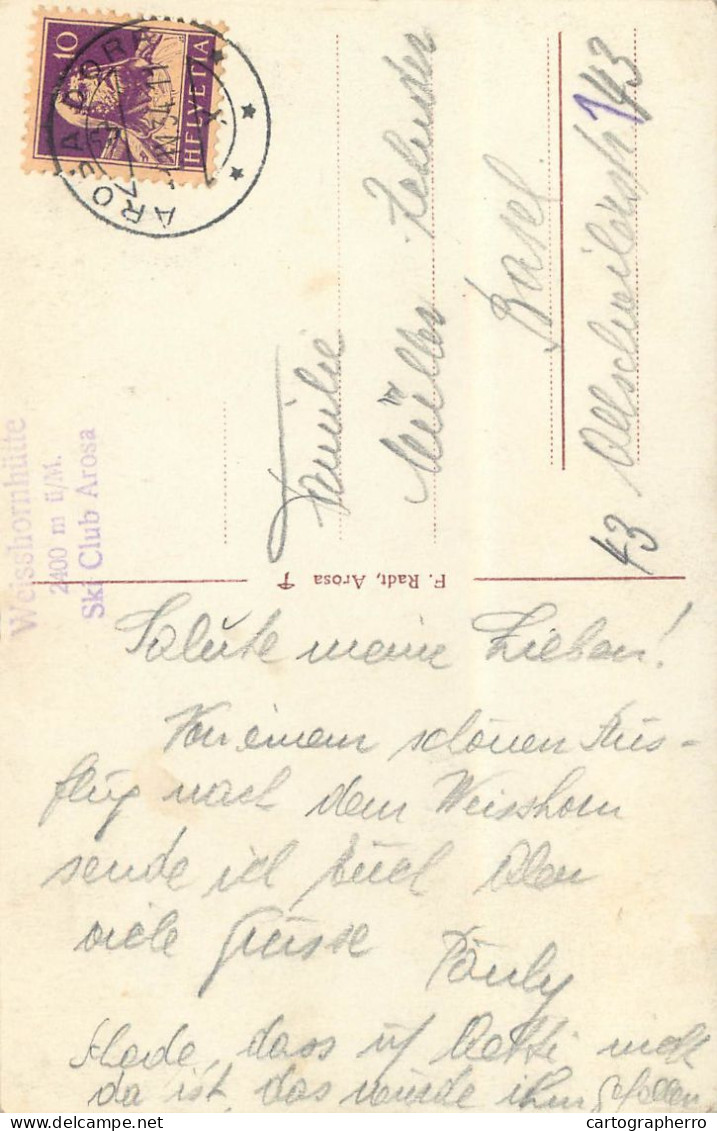 10
HELVETIA
AROSA DORF
Weisshornhütte
2400 m ü/M.
Ski Club Arosa
Familie
Müller
Basel
43 Allschwilerstr 143
F. Radt, Arosa
Salute meine Lieben!
Von einem schönen Aus-
flug nach dem Weisshorn
sende ich Euch Allen
viele Grüsse
Pauly
Schade, dass
da ist, das würde ihm gefallen
cartographerro